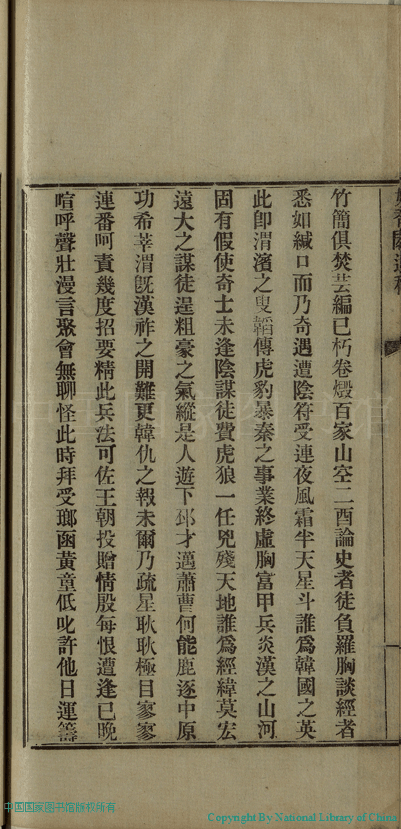 竹簡俱焚芸編已朽卷燬百家山空二酉論史者徒負羅胸談經者
悉如緘口而乃奇遇遭陰符受連夜風霜半天星斗誰爲韓國之英
此卽渭濱之叟韜傳虎豹暴秦之事業終虛胸富甲兵炎漢之山河
固有假使奇士未逢陰謀徒費虎狼一任兇殘天地誰爲經緯莫宏
遠大之謀徒逞粗豪之氣縱是人遊下邳才邁蕭曹何能鹿逐中原
功希莘渭旣漢祚之開難更韓仇之報未爾乃疏星耿耿極目寥寥
連番呵責幾度招要精此兵法可佐王朝投贈情殷每恨遭逢已晚
喧呼聲壯漫言聚會無聊怪此時拜受瑯函黃童低叱許他日運籌
中国国家图书馆版权所有
Copyright By National Library of China